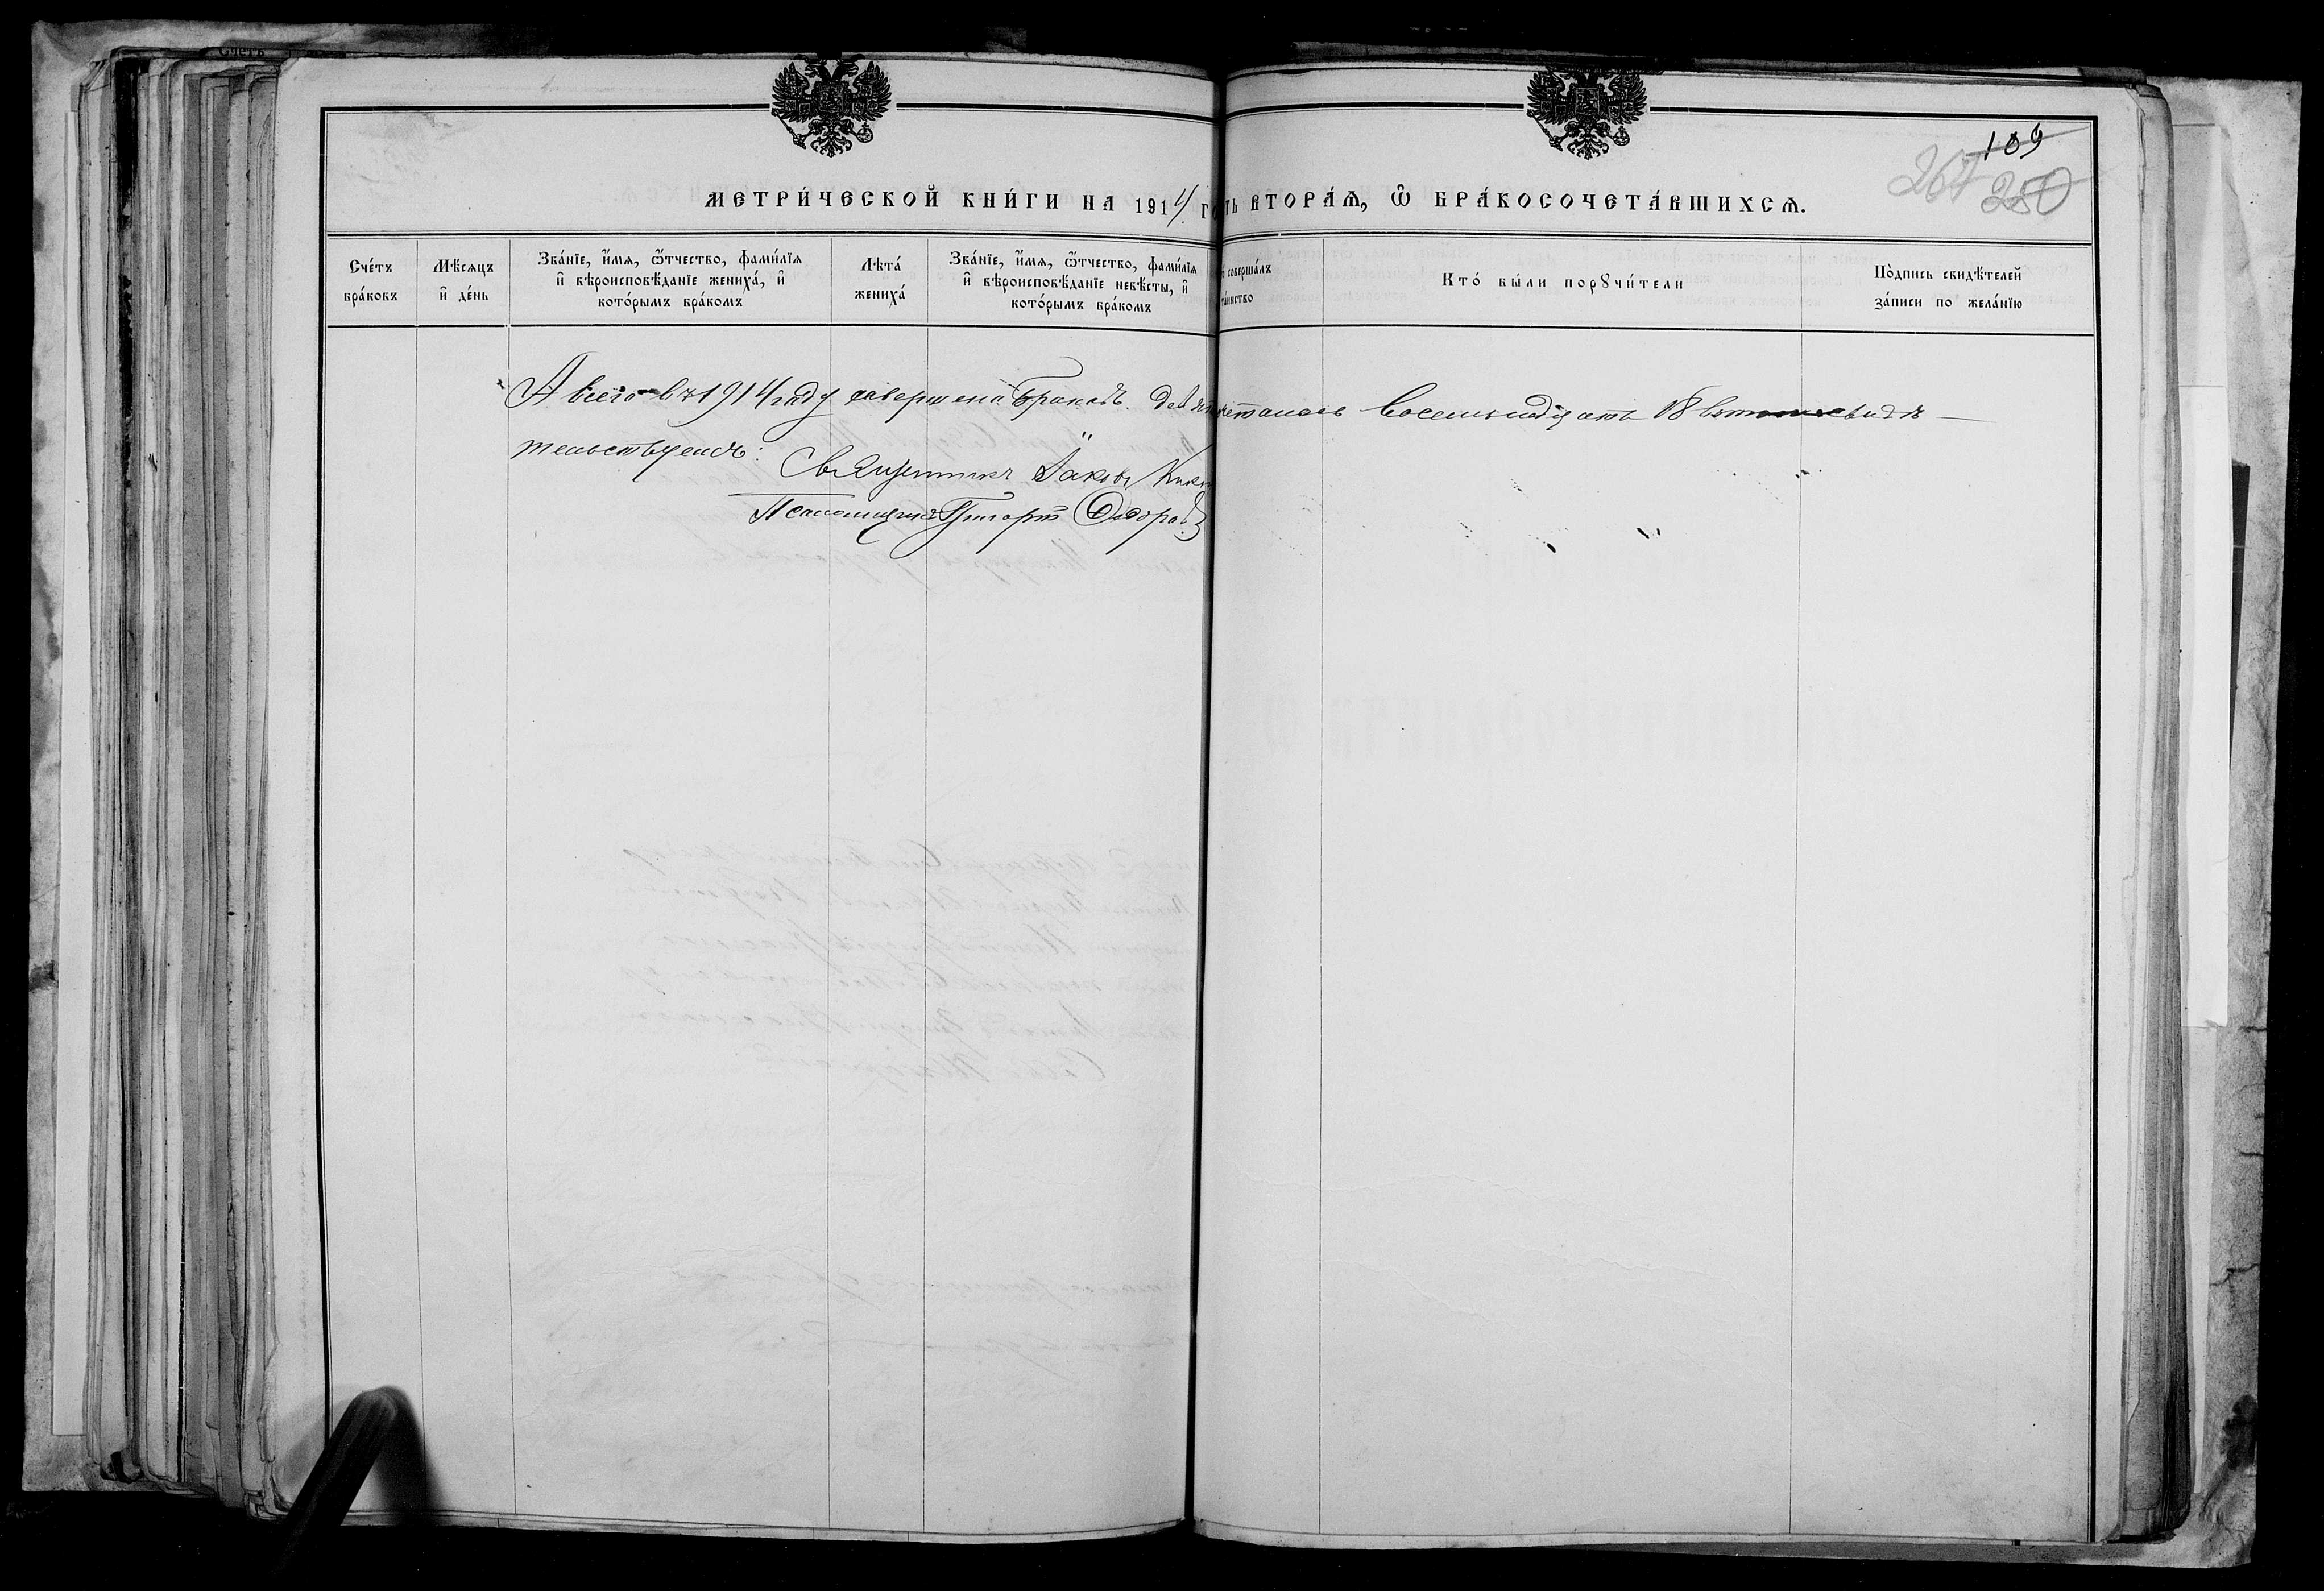 109
267 250
МЕТРИ́ЧЕСКОЙ КНИ́ГИ НА 1914 ГО ТЬ ВТОРА́Ѧ, Ѽ БРА́КОСОЧЕТА́ВШИХСѦ.
Сче́тъ бра́ковъ
Мѣ́сяцъ и҆ де́нь
Зва́нїе, и҆́мѧ, ѻ҆́тчество, фами́лїѧ и҆ вѣроисповѣ́данїе жениха́, и҆ кото́рымъ бра́комъ
Лѣта́ жениха́
Зва́нїе, и҆́мѧ, ѻ҆́тчество, фами́лїѧ и҆ вѣроисповѣ́данїе невѣ́сты, и҆ кото́рымъ бра́комъ
соверша́лъ та́инство
Кто́ бы́ли порꙋчи́тели
По́дпись свидѣ́телей за́писи по жела́нїю
А всего въ 1914 году совершено браковъ. восемнадцать 18
тельствуемъ:
Священникъ Іаковъ
Псаломщикъ Григорій Ѳедоровъ